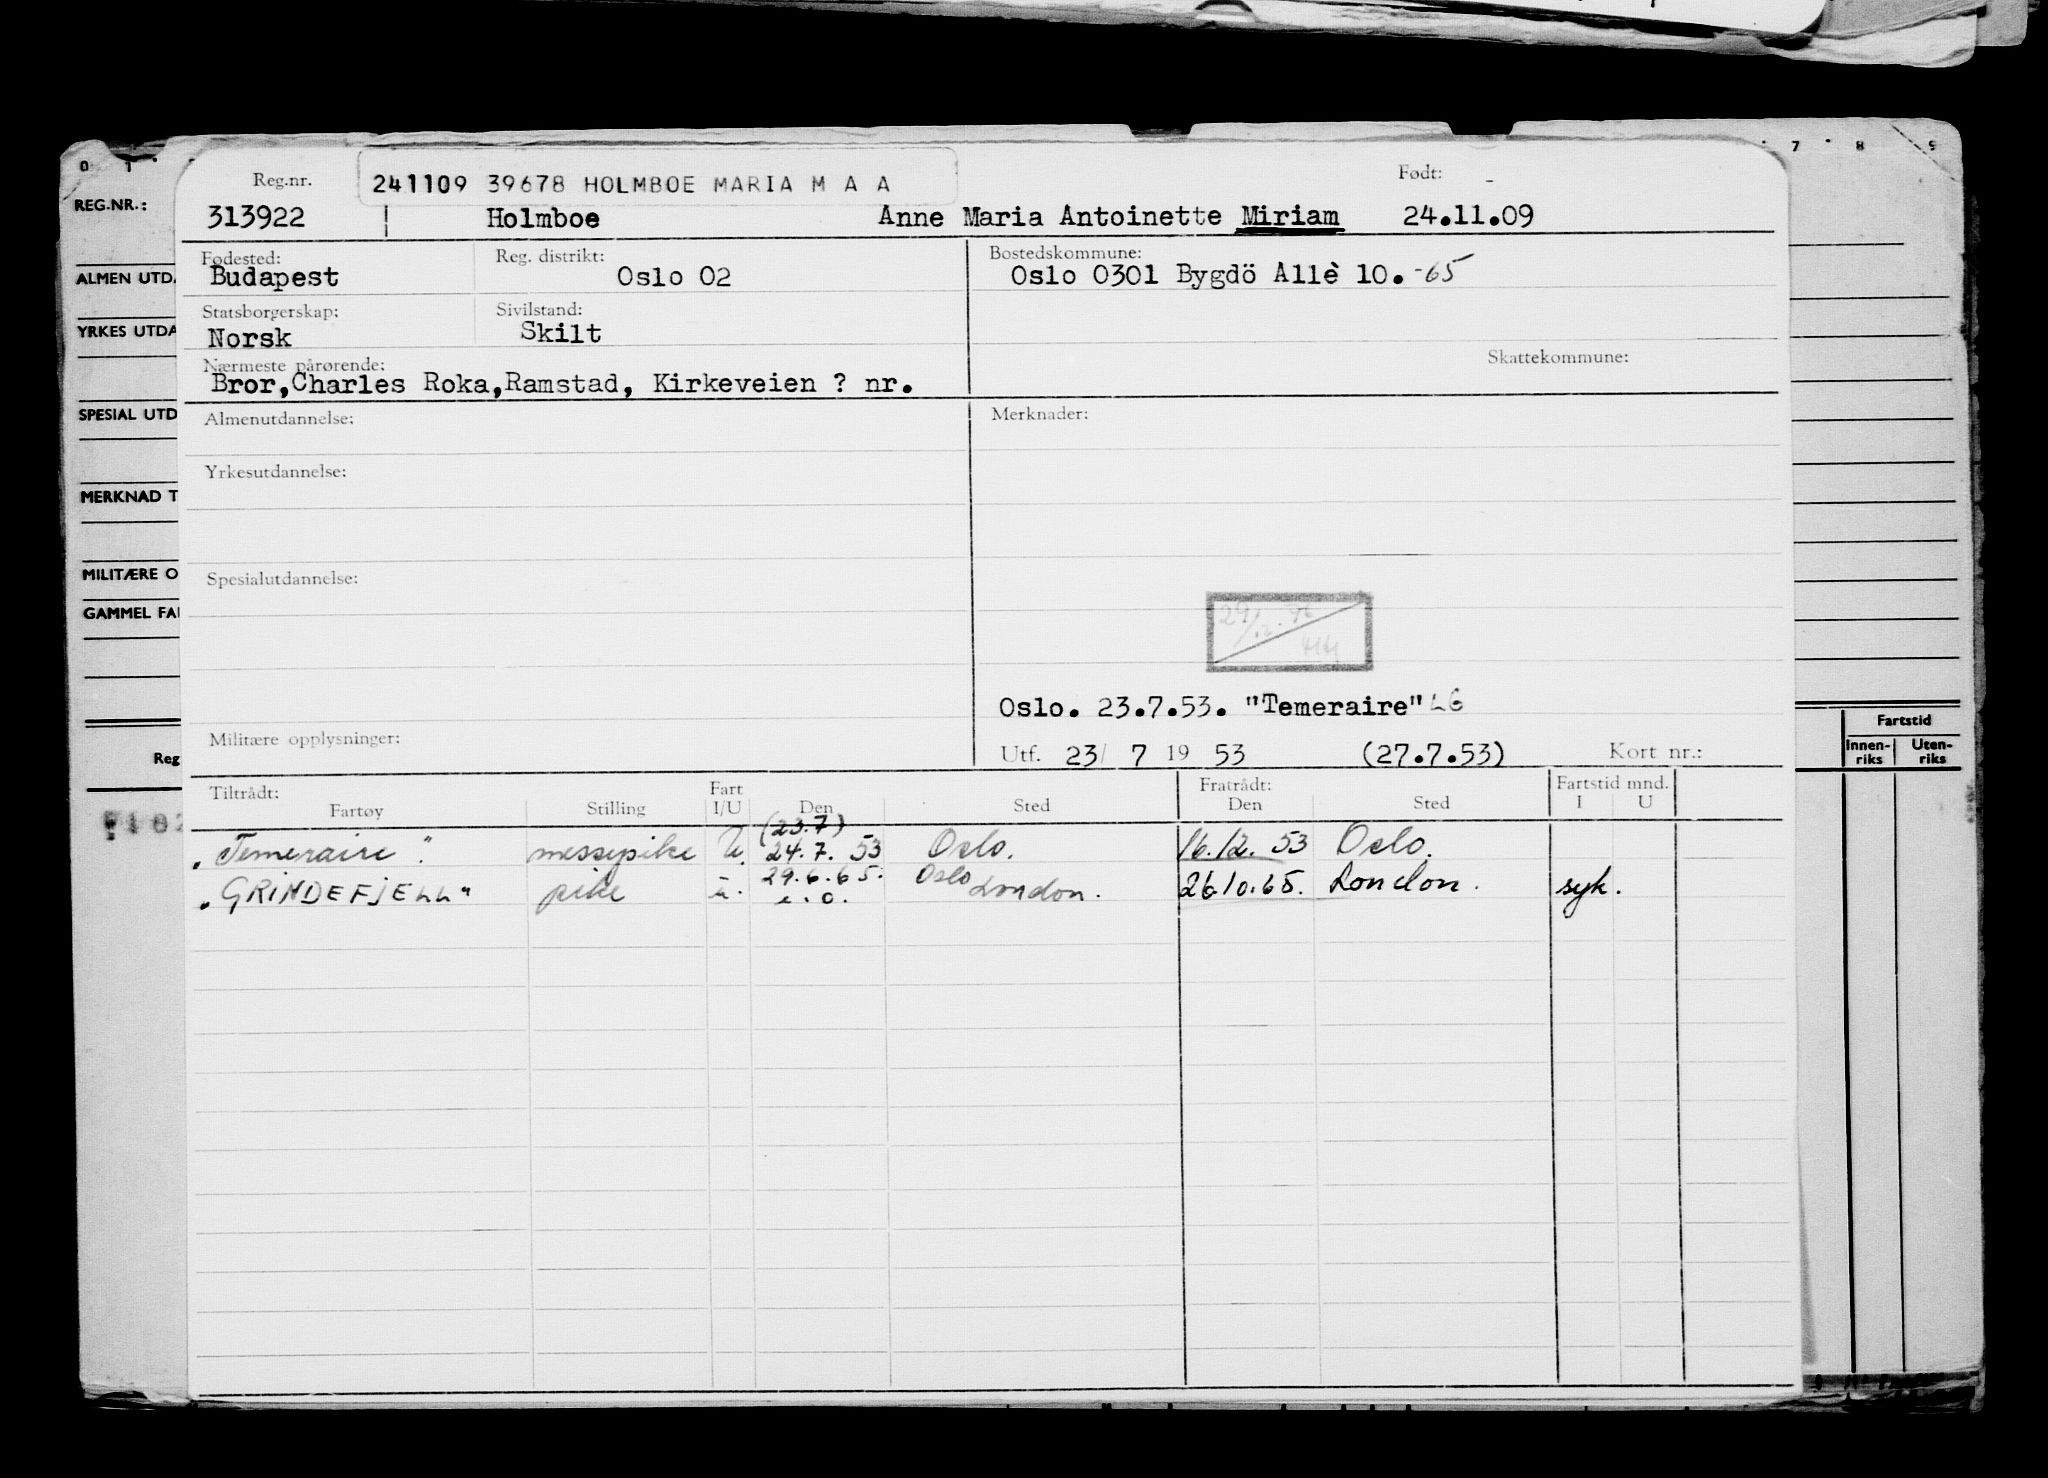 0 1 7 8 9
Reg.nr. 241109 39678 HOLMBOE MARIA M A A Født: -
REG.NR.: 313922 Holmboe Anne Maria Antoinette Miriam 24.11.09
Fødested: Reg. distrikt: Bostedskommune:
Budapest Oslo 02 Oslo 0301 Bygdö Allè 10. -65
ALMEN UTDA
Statsborgerskap: Sivilstand:
YRKES UTDA Norsk Skilt
Nærmeste pårørende: Skattekommune:
Bror, Charles Roka, Ramstad, Kirkeveien ? nr.
SPESIAL UTD Almenutdannelse: Merknader:
Yrkesutdannelse:
MERKNAD T
MILITÆRE O Spesialutdannelse:
GAMMEL FAI
Oslo. 23.7.53. "Temeraire" LG
Militære opplysninger: Fartstid
Reg Utf. 23/ 7 19 53 (27.7.53) Kort nr.: Innen-riks Uten-riks
Tiltrådt: Fart Fratrådt: Fartstid mnd.
Fartøy Stilling I/U Den Sted Den Sted I U
(23.7)
„Temeraire". messepike U. 24.7. 53 Oslo. 16.12. 53 Oslo.
29.6.65. Oslo
„GRINDEFJELL" pike u. e.o. London. 26.10.65. London. syk.